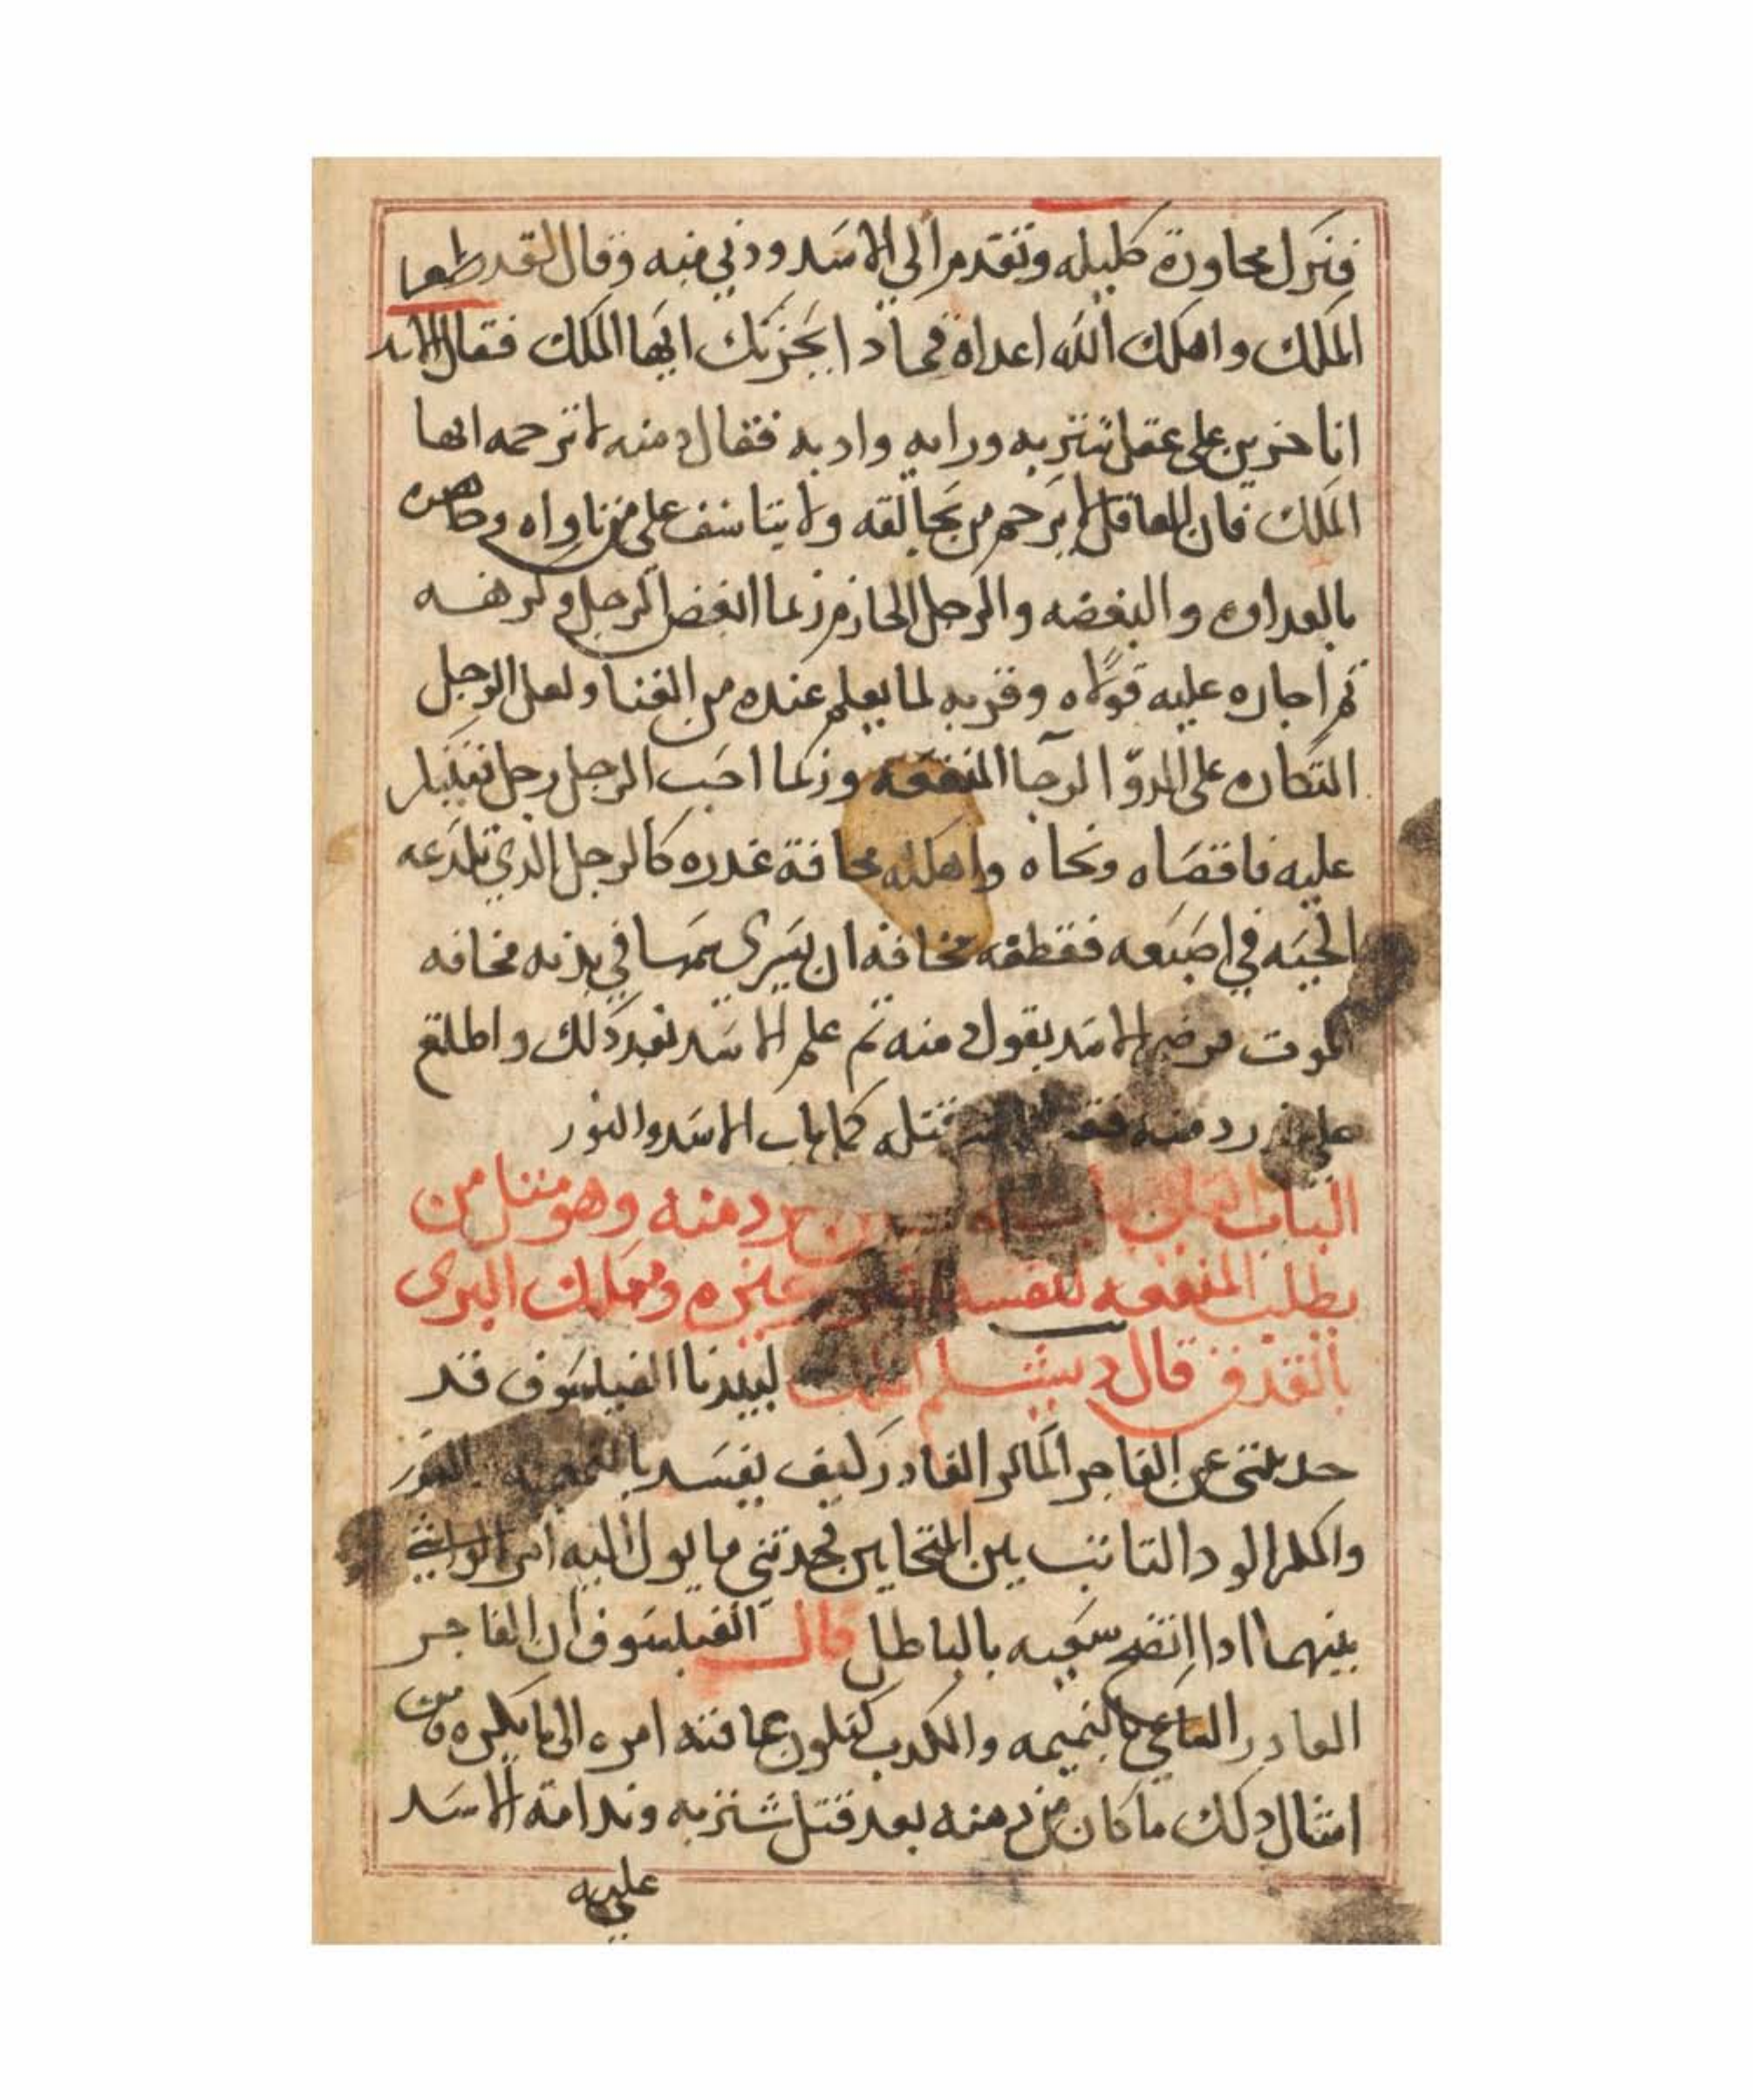 فترك محاورة كليله وتقدم الى الاسد ودني منه وقال لقد ظفر
الملك واهلك الله اعداه فماذا يحزنك ايها الملك فقال الاسد
انا حزين على عقل شتربه ورايه وادبه فقال دمنه لا ترحمه ايها
الملك فان العاقل لا يرحم من يخالفه ولا يتاسف على من ناواه
بالعداوه والبغضه والرجل الحازم ربما ابغض الرجل وكرهه
ثم اجازه عليه قولاه وقربه لما يعلم عنده من الغنا ولعل الرجل
المتكاره على الدوا لرجا المنفعه وربما احب الرجل رجل
عليه فاقصاه ونحاه واهلكه مخافة غدره كالرجل الذي تلدعه
الحيه في اصبعه فقطعه مخافة ان يسرى سمها في بدنه مخافه
الموت فرضي الاسد بقول دمنه ثم علم الاسد بعد ذلك واطلع
على دمنه قتله كما باب الاسد والثور
الباب دمنه وهو مثل من
يطلب المنفعه لنفسه غيره
قال دبشلم لبيدبا الفيلسوف قد
حدثتني عن الفاجر الماكر الغادر كيف يفسد
والمكر الود الثابت بين المتحابين فحدثني ما يول اليه امر الواشي
بينهما اذا اتضح سعيه بالباطل قال الفيلسوف ان الفاجر
الغادر الساعي بالنميمه والكدب تكون عاقبة امره الى ما يكره ومن
امثال دلك ما كان من دمنه بعد قتل شتربه وندامة الاسد
عليه